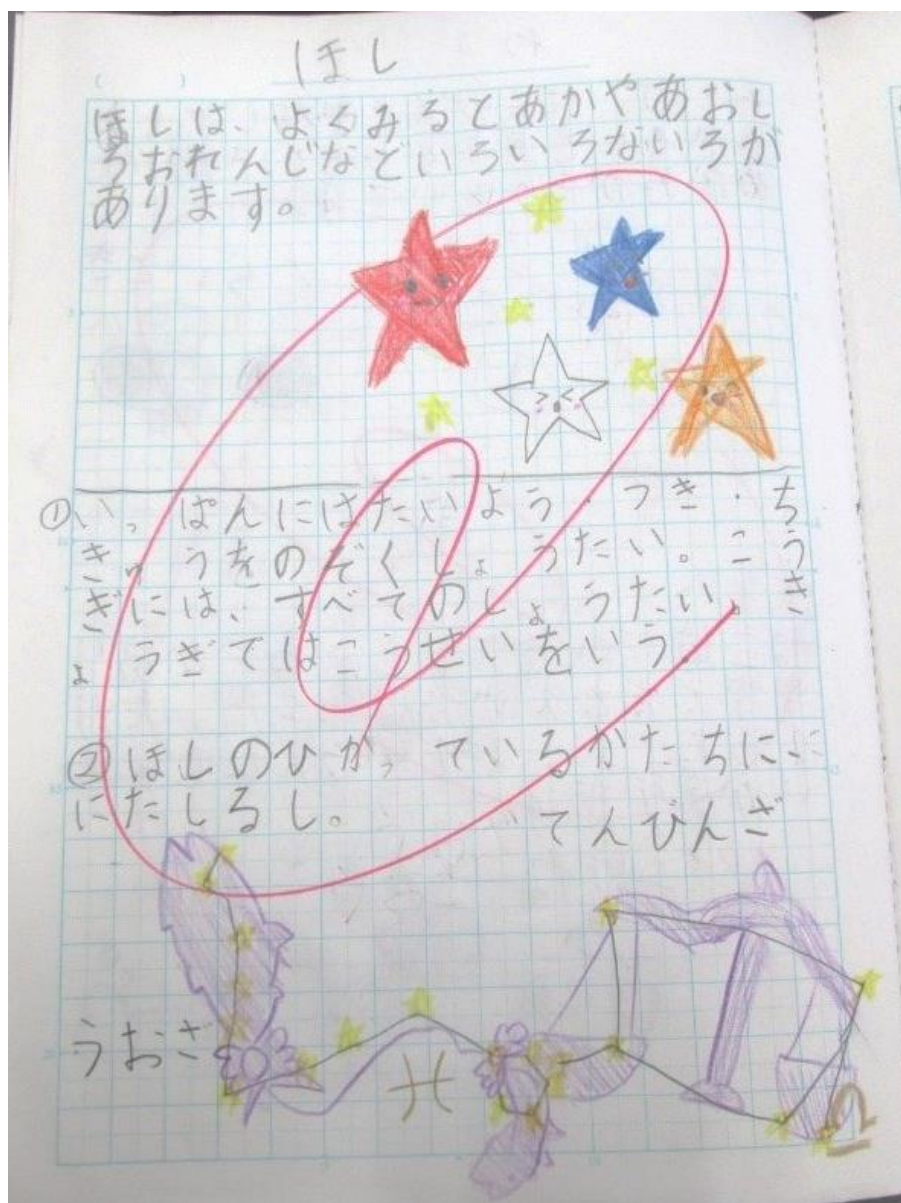 ほし
ほしは、よくみるとあかやあおし
ろおれんじなどいろいろないろが
あります。
①いっぱんにはたいよう・つき・ち
きゅうをのぞくしょうたい。こう
ぎには、すべてのしょうたい。き
ょうぎではこうせいをいう。
②ほしのひかっているかたちに
にたしるし。
てんびんざ
うおざ